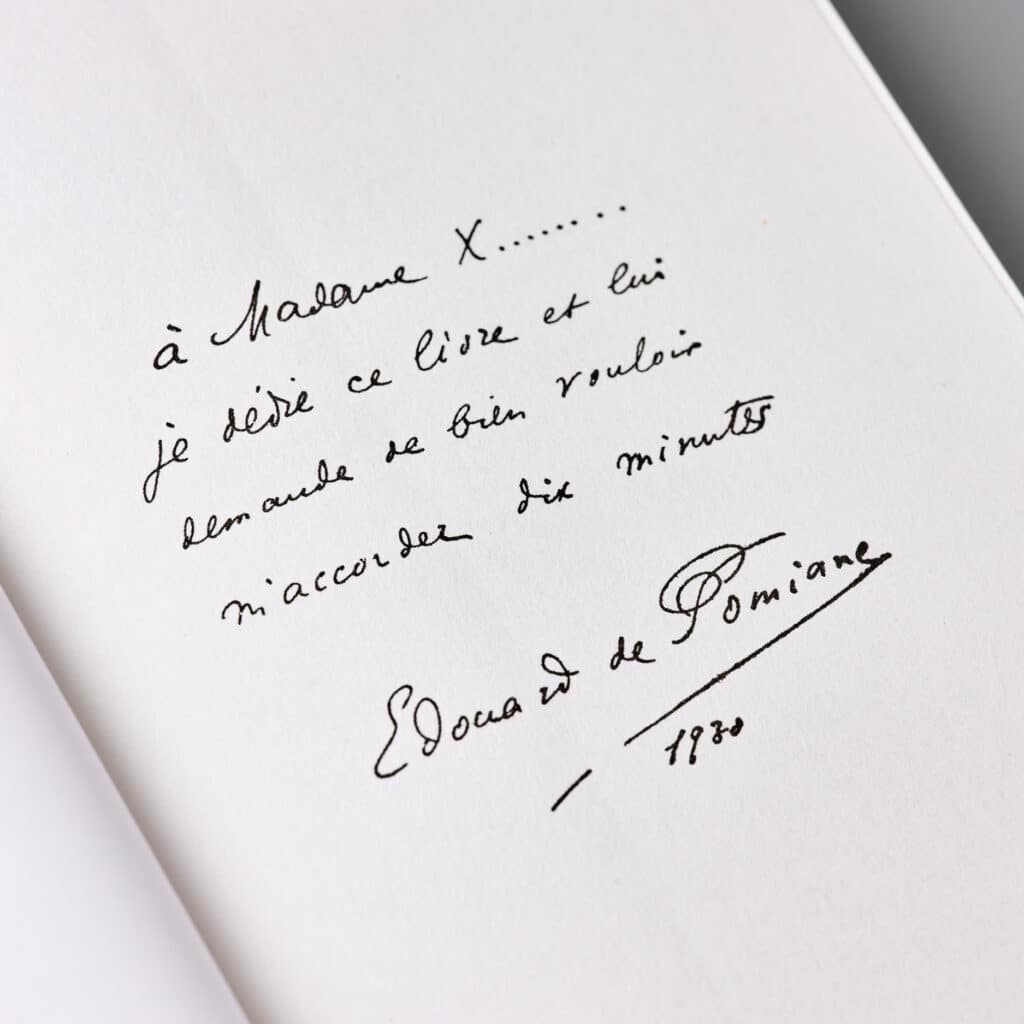 à Madame X........
je dédie ce livre et lui
demande de bien vouloir
m'accorder dix minutes
Edouard de Pomiane
1930